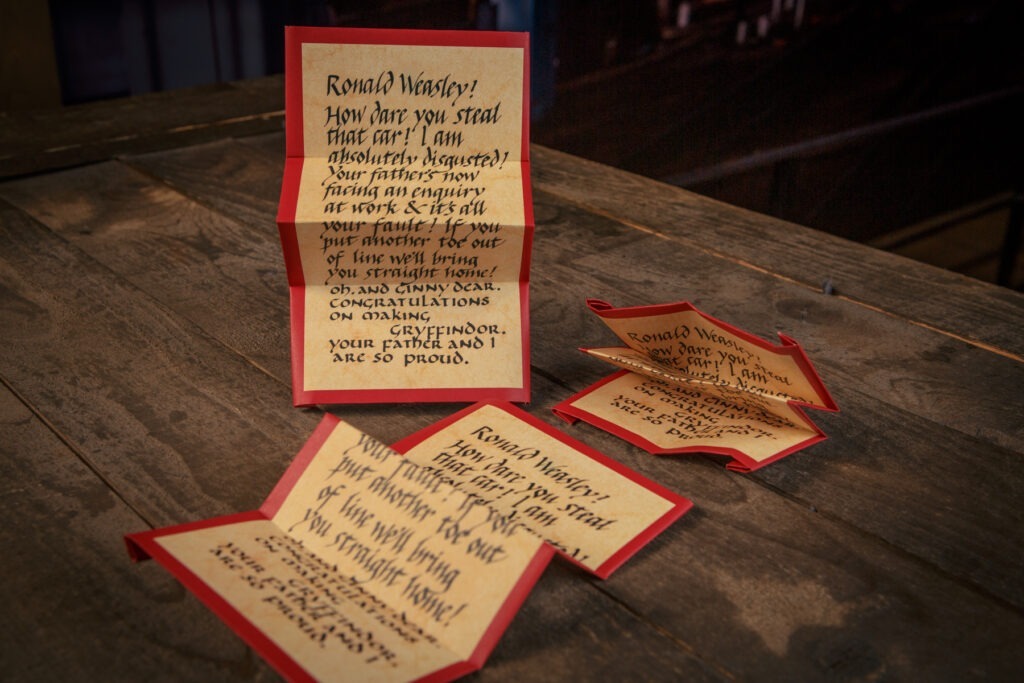 Ronald Weasley!
How dare you steal
that car! I am
absolutely disgusted!
Your father's now
facing an enquiry
at work & it's all
your fault! If you
put another toe out
of line we'll bring
you straight home!
oh, and Ginny dear.
CONGRATULATIONS
ON MAKING
GRYFFINDOR.
YOUR FATHER AND I
ARE SO PROUD.
Ronald Weasley!
How dare you steal
that car! I am
absolutely disgusted!
CONGRATULATIONS
ON MAKING
GRYFFINDOR.
YOUR FATHER AND I
ARE SO PROUD.
Ronald Weasley!
How dare you steal
that car! I am
your fault! If you
put another toe out
of line we'll bring
you straight home!
CONGRATULATIONS
ON MAKING
GRYFFINDOR.
YOUR FATHER AND I
ARE SO PROUD.